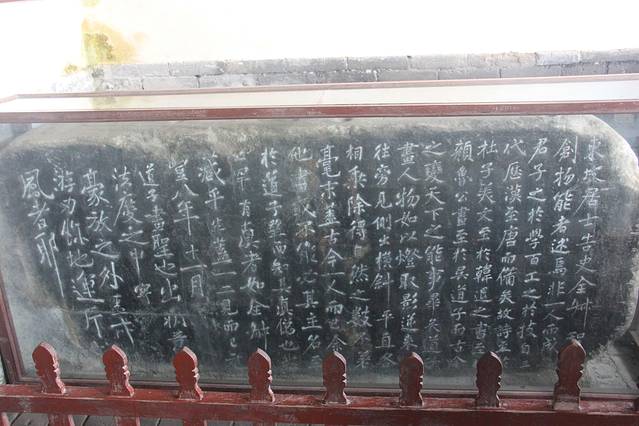 東坡居士書史全叔
創物能者述焉非一人而成
君子之於學百工之於技自三
代歷漢至唐而備矣故詩至
杜子美文至於韓退之書至
顏魯公畫至於吳道子而古今
之變天下之能事畢矣道
畫人物如以燈取影逆來
往旁見側出橫斜平直各
相乘除得自然之數
毫末蓋古今一人而已余
他畫或不能必其主名
於道子望而知其真偽也
世罕有真者如全叔
藏平生蓋一二見而已元
豐八年十一月
道子畫聖也出新意
法度之中寄
豪放之外蓋
游刃餘地運斤
風者耶